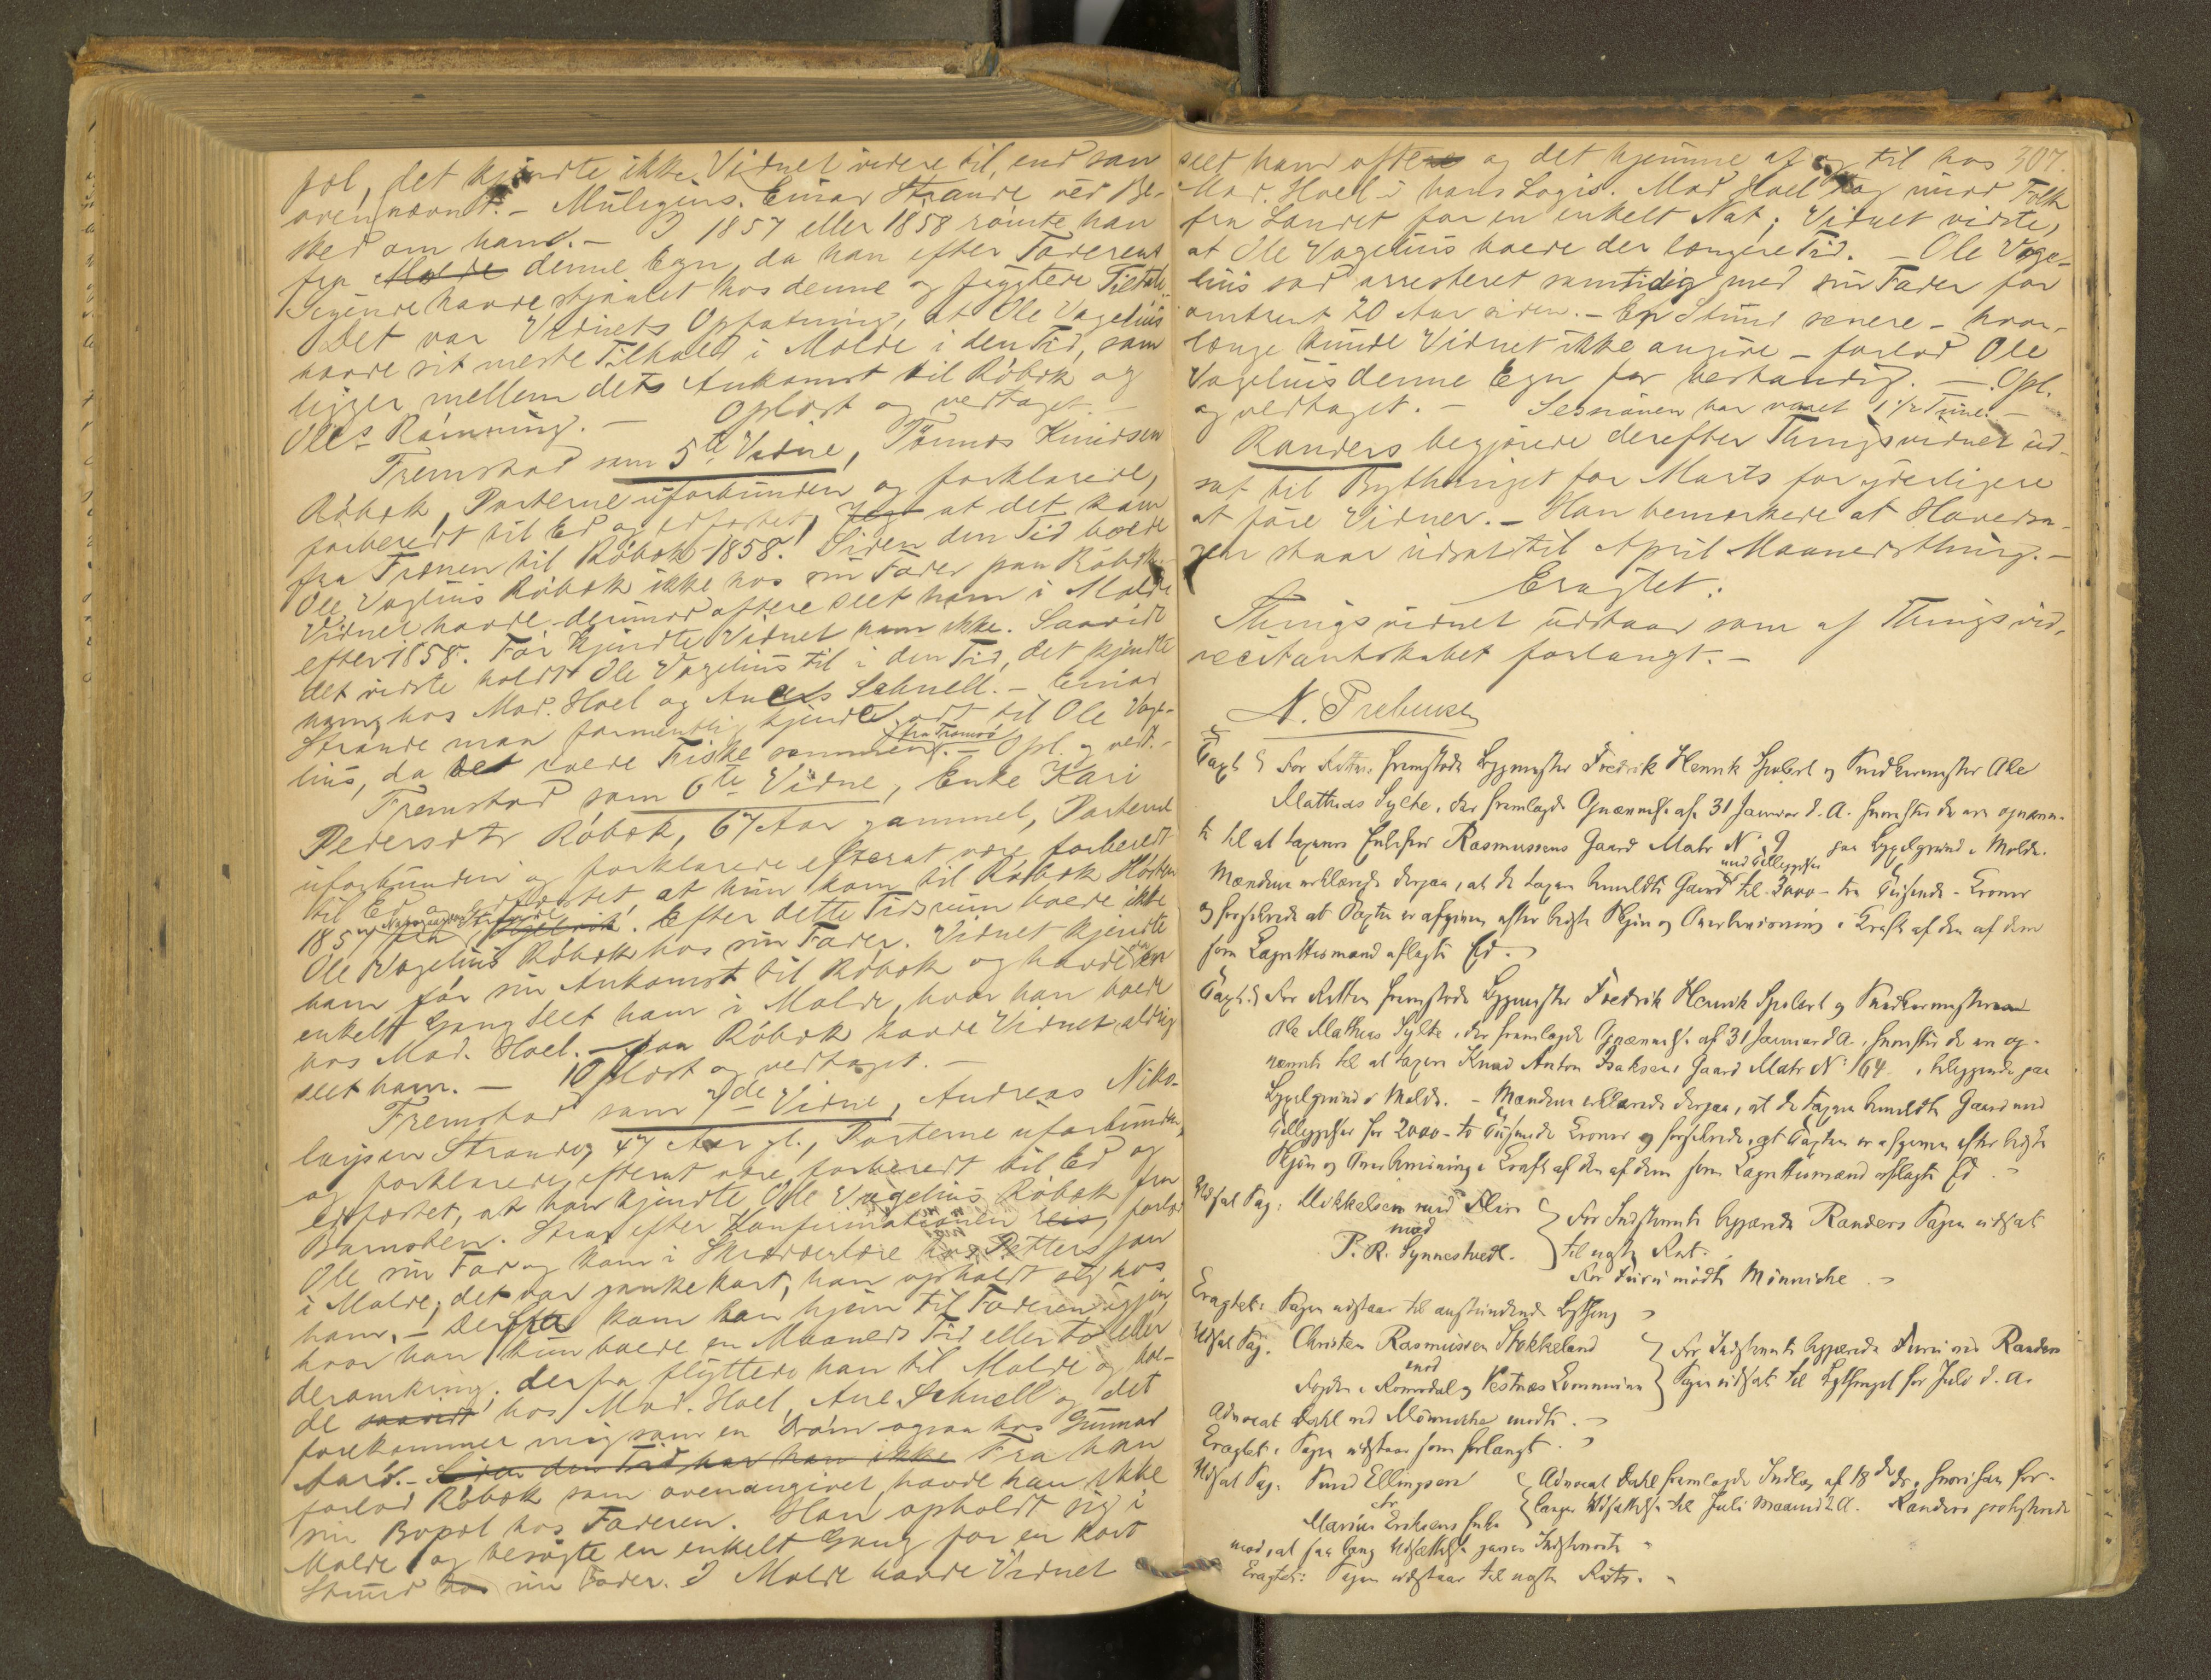 pæl, det kjendte ikke Vidnet videre til, end som
ovennævnt. – Muligens Einar Strande véd Be-
sked om ham. – I 1857 eller 1858 rømte han
fra Molde denne Egn, da han efter Faderens
Sigende havde stjaalet hos denne og frygtede Tiltale
Det var Vidnets Opfatning, at Ole Vagelius
havde sit meste Tilhold i Molde i den Tid, som
ligger mellem dets Ankomst til Röbæk og
Oles Rømning. – Oplæst og vedtaget. –
Fremstod som 5te Vidne, Tønnes Knudsen
Röbæk, Parterne uforbunden og forklarede,
forberedt til Ed og edfæstet, at det kom
fra Frænen til Röbæk 1858. Siden den Tid boede
Ole Vagelius Röbæk ikke hos sin Fader paa Röbæk.
Vidnet havde derimod oftere seet ham i Molde
efter 1858. Før kjendte Vidnet ham ikke. Saavidt
det vidste holdt Ole Vagelius til i den Tid, det kjendte
ham, hos Mad. Hoel og Aners Schnell. – Einar
Strande maa formentlig kjendt godt til Ole Vage-
lius, da de roede Fiske sammen fra Tromsø. – Opl. og vedt. –
Fremstod som 6te Vidne, Enke Kari
Pedersdtr Röbæk, 67 Aar gammel, Parterne
uforbunden og forklarede efterat være forberedt
til Ed og edfæstet, at hun kom til Röbæk Høsten
1857 fra. Efter dette Tidsrum boede ikke
Ole Vagelius Röbæk hos sin Fader. Vidnet kjendte
ham før sin Ankomst til Röbæk og havde da en
enkelt Gang seet ham i Molde, hvor han boede
hos Mad. Hoel. – Paa Röbæk havde Vidnet aldrig
seet ham. – Oplæst og vedtaget. –
Fremstod som 7de Vidne, Andreas Niko-
laysen Strande, 47 Aar gl., Parterne uforbunden,
og forklarede, efterat være forberedt til Ed og
edfæstet, at han kjendte Ole Vagelius Röbæk fra
Barnsben. Strax efter Konfirmationen reis, forlod
Ole sin Far og kom i Skrædderlære hos Petters paa
i Molde; det var ganske kort, han opholdt sig hos
ham. – Derefter kom han hjem til Faderen igjen,
hvor han kun boede en Maaneds Tid eller to eller
deromkring; derfra flyttede han til Molde og boe-
de saavidt hos Mad. Hoel, Ane Schnell og det
forekommer mig som en Drøm ogsaa hos Gunnar
Aarø. – Siden den Tid har han ikke Fra han
forlod Röbæk som ovenangivet, havde han ikke
sin Bopæl hos Faderen. Han opholdt sig i
Molde og besøgte en enkelt Gang for en kort
Stund hos sin Fader. I Molde havde Vidnet
307.
seet ham oftere og det hjemme af og til hos
Mad. Hoel i hans Logis. Mad Hoel tog imod Folk
fra Landet for en enkelt Nat; Vidnet vidste,
at Ole Vagelius boede der længere Tid. – Ole Vage-
lius sad arresteret samtidig med sin Fader for
omtrent 20 Aar siden. – En Stund senere – hvor-
længe kunde Vidnet ikke angive – forlod Ole
Vagelius denne Egn for bestandig. – Opl.
og vedtaget. – Sessionen har varet 1 1/2 Time. –
Randers begjærede derefter Thingsvidnet ud-
sat til Bythinget for Marts for yderligere
at føre Vidner. – Han bemærkede at Hovedsa-
gen staar udsat til April Maanedsthing. –
Eragtet:
Thingsvidnet udstaar som af Thingsvid-
recitantskabet forlangt. –
N. Prebensen
Taxt. For Retten fremstode Bygmester Fredrik Henrik Sjøbert og Snedkermester Ole
Mathias Sylte, der fremlagde Opnævnelse af 31 Januar d. A. hvorefter de ere opnævn-
te til at taxere Rasmussens Gaard Matr N: 9 paa Bygselgrund i Molde.
Mændene erklærede derpaa, at de taxere bemeldte Gaard med Tilliggelse til 3000 – tre Tusinde – Kroner
og forsikrede at Taxten er afgiven efter bedste Skjøn og Overbevisning i Kraft af den af dem
som Lagrettesmænd aflagte Ed.
Taxt. For Retten fremstode Bygmester Fredrik Henrik Sjøbert og Snedkermester
Ole Mathias Sylte, der fremlagde Opnævnelse af 31 Januar d A., hvorefter de ere op-
nævnte til at taxere Knud Anton Isaksens Gaard Matr N: 164, beliggende paa
Bygselgrund i Molde. – Mændene erklærede derpaa, at de taxere bemeldte Gaard med
Tilliggelser for 2000 – to Tusinde Kroner og forsikrede, at Taxten er afgiven efter bedste
Skjøn og Overbevisning i Kraft af den af dem som Lagrettesmænd aflagte Ed.
Udsat Sag: Mikkelsen med Flere
mod
P. R. Synnestvedt.
For Indstevnte begjærede Randers Sagen udsat
til næste Ret.
For mødte Münniche.
Eragtet: Sagen udstaar til anstundende Bything
Udsat Sag. Christen Rasmussen Stokkeland
mod
Fogden i Romsdal og Vestnes Kommune
For Indstevnte begjærede ved Randers
Sagen udsat til Bythinget for Juli d. A.
Advocat Dahl ved Münniche mødte.
Eragtet: Sagen udstaar som forlangt.
Udsat Sag. Knud Ellingsen
Marius Eriksens Enke
Advocat Dahl fremlagde Indlæg af 18de ds, hvori han for-
langer Udsættelse til Juli Maaned d A. Randers protesterede
mod, at saa lang Udsættelse gaves Indstevnte
Eragtet: Sagen udstaar til næste Ret.